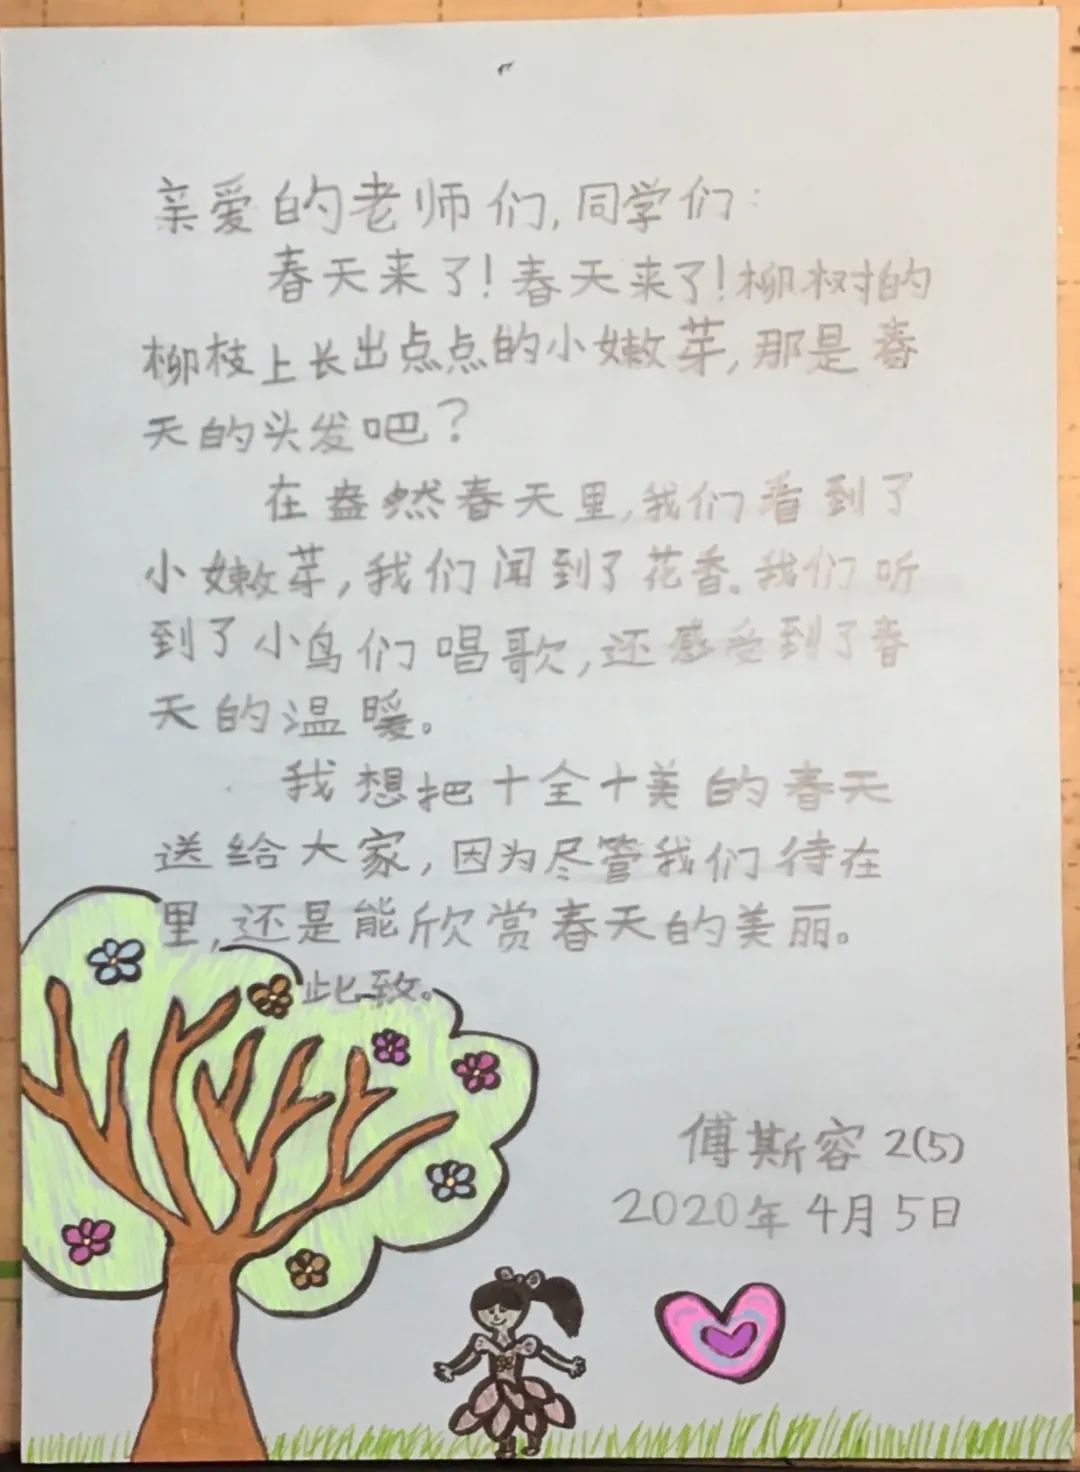 亲爱的老师们,同学们:
春天来了!春天来了!柳树的
柳枝上长出点点的小嫩芽,那是春
天的头发吧?
在盎然春天里,我们看到了
小嫩芽,我们闻到了花香。我们听
到了小鸟们唱歌,还感受到了春
天的温暖。
我想把十全十美的春天
送给大家,因为尽管我们待在
里,还是能欣赏春天的美丽。
此致。
傅斯容 2(5)
2020年4月5日